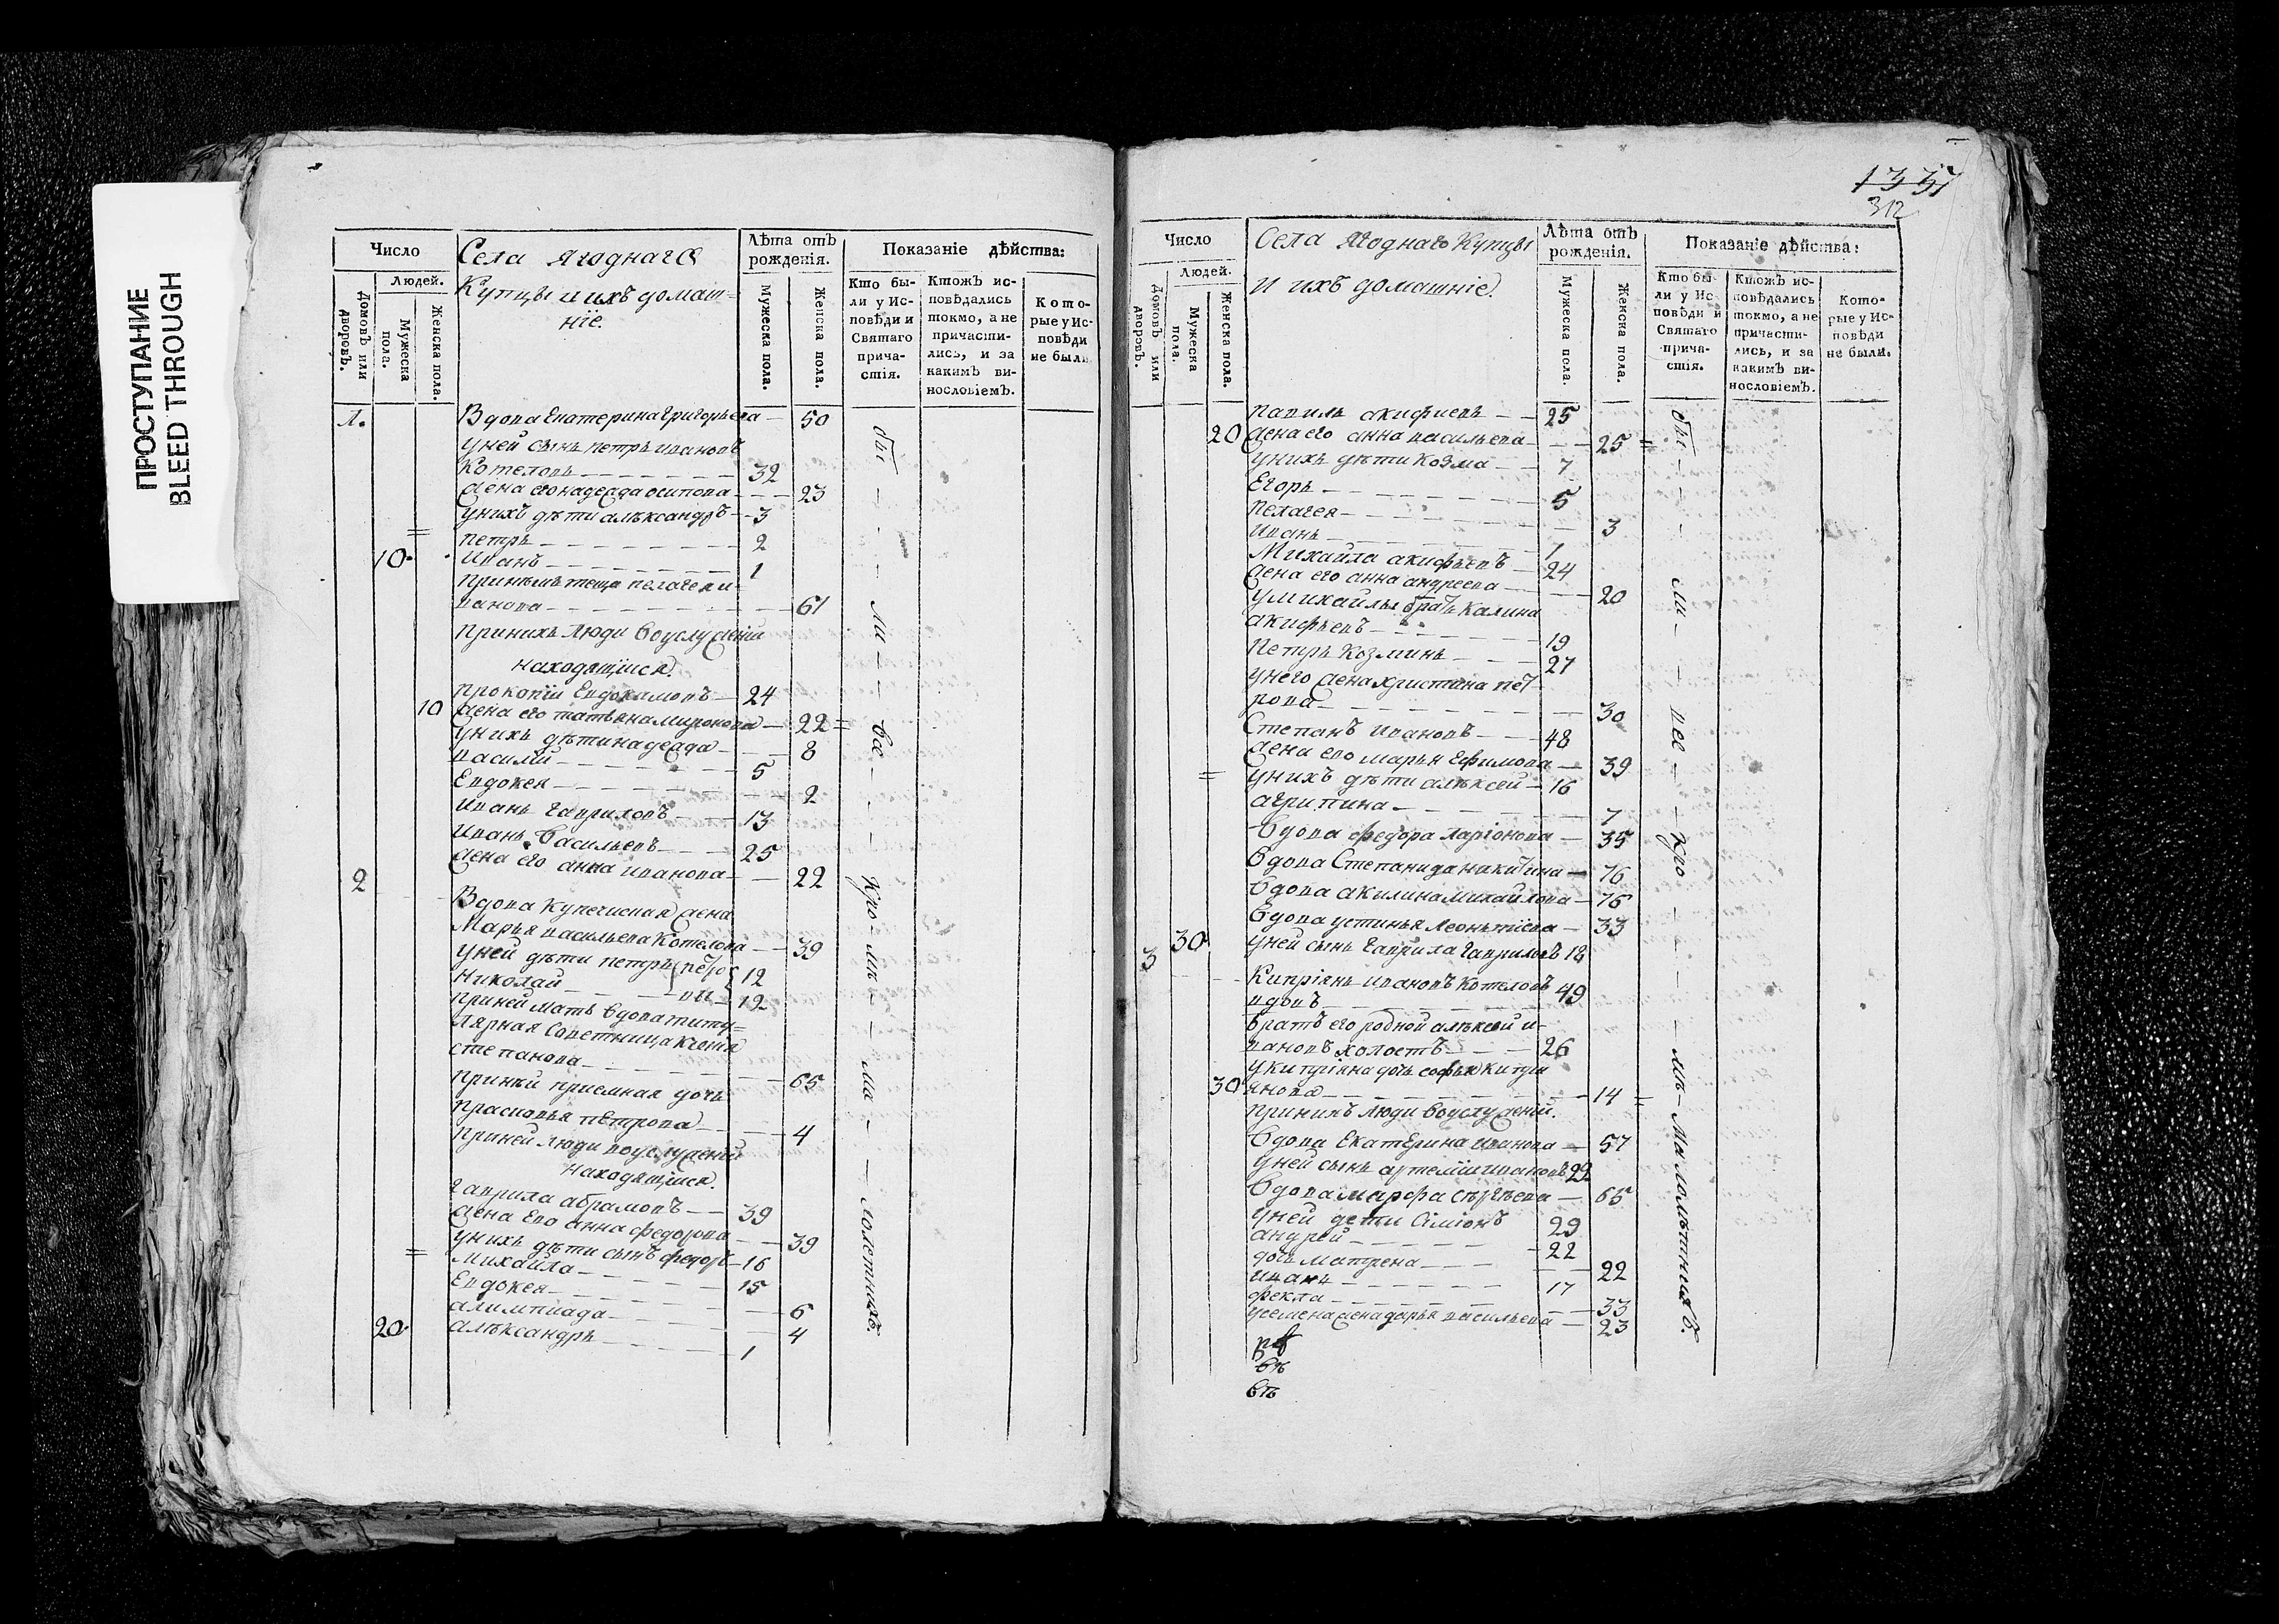 ПРОСТУПАНИЕ
BLEED THROUGH
Число
Людей.
Домовъ или дворовъ.
Мужеска пола.
Женска пола.
Села Ягоднаго
Купцы и ихъ домаш=
нїе.
Лѣта отъ рожденія.
Мужеска пола.
Женска пола.
Показаніе дѣйства:
Кто бы-
ли у Ис-
повѣди и
Святаго
прича-
стія.
Ктожъ ис-
повѣдались
токмо, а не
причасти-
лись, и за
какимъ ви-
нословіемъ.
Кото-
рые у Ис-
повѣди
не были.
1. Вдова Екатерина Григорьева — 50
у ней сынъ петръ ивановъ
Котеловъ — 32
жена его надежда осипова — 23
у нихъ дѣти алѣксандръ — 3
петръ — 2
10. Иванъ — 1
теща пелагея и-
ванова — 61
При нихъ люди воуслуженїи
находящїися.
прокопїи Евдокимовъ — 24
10 жена его татьяна миронова — 22 =
у нихъ дѣти надежда — 8
василий — 5
Евдокея — 2
Иванъ Гавриловъ — 13
Иванъ Васильевъ — 25
жена его анна иванова — 22
2 Вдова купеческая жена
Марья васильева Котелова — 39
у ней дѣти петръ петро 12
Николай — вы — 12
при ней мать вдова титу=
лярная Советница
степанова — 65
при ней приемная дочь
Прасковья петрова — 4
При ней люди воуслуженїи
находящїися.
гаврила абрамовъ — 39
жена Его анна федорова — 39
у нихъ дѣти сынъ федоръ — 16
Михайла — 15
Евдокея — 6
алимпиада — 4
20 алѣксандръ — 1
бы — ли — все — кро — мѣ — ма — лолетныхъ.
1337
312
Число
Людей.
Домовъ или дворовъ.
Мужеска пола.
Женска пола.
Села Ягоднаго Купцы
и ихъ домашніе.
Лѣта отъ рожденія.
Мужеска пола.
Женска пола.
Показаніе дѣйства:
Кто бы-
ли у Ис-
повѣди и
Святаго
прича-
стія.
Ктожъ ис-
повѣдались
токмо, а не
причасти-
лись, и за
какимъ ви-
нословіемъ.
Кото-
рые у Ис-
повѣди
не были.
павилъ акифиевъ — 25
20 жена его анна васильева — 25 =
у нихъ дѣти козма — 7
Егоръ — 5
Пелагея — 3
Иванъ — 1
Михайла акифьевъ — 24
жена его анна андреева — 20
у михайлы братъ Калина
акифьевъ — 19
Петръ Козминъ — 27
у него жена христина пет-
рова — 30
Степанъ ивановъ — 48
жена его марья Ефимова — 39
у нихъ дѣти алѣксей — 16
агрипина — 7
вдова федора ларіонова — 35
вдова Степанида никитина — 76
вдова акилина михайлова — 76
вдова устинья леонтїева — 33
30 у ней сынъ гаврила гавриловъ 18
3 Кипріянъ ивановъ Котеловъ
вдовъ — 49
братъ его родной алѣксей и-
вановъ холостъ — 26
у Кипріяна дочь софья кипри
30 янова — 14 =
При нихъ люди воуслуженїи.
вдова Екатерина иванова — 57
у ней сынъ артемїи ивановъ 22
вдова марфа сѣргѣева — 65
у ней дети Сіміонъ 29
андрей — 22
дочь матрена — 22
иванъ — 17
фекла — 33
у семена жена дарья васильева — 23
въ
въ
бы — ли — все — кро — мѣ — малолѣтныхъ.